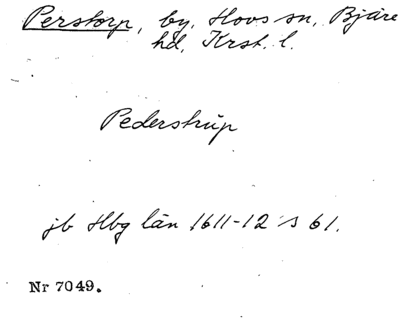 Perstorp, by, Hovs sn, Bjäre
hd, Krst. l.
Pederstrup
jb Hbg län 1611-12 s 61.
Nr 7049.